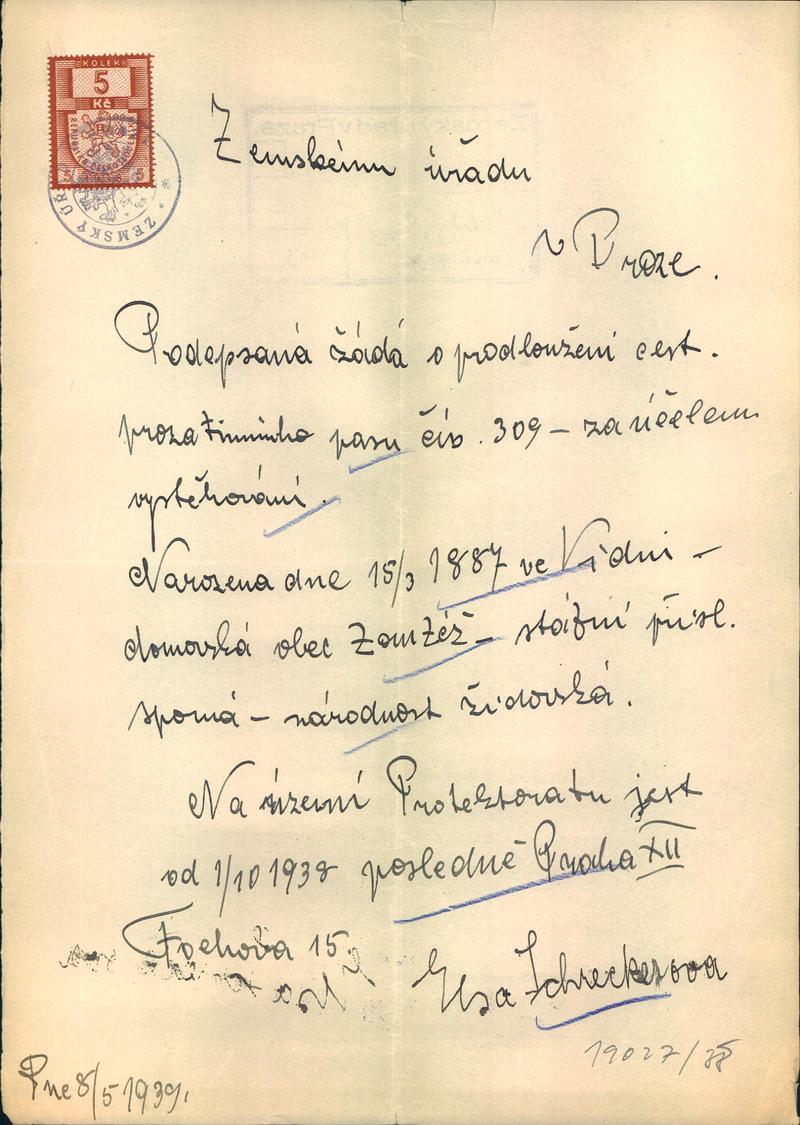 KOLEK
5
Kč
REPUBLIKA ČESKOSLOVENSKÁ
ZEMSKÝ ÚŘ
Zemskému úřadu
v Praze.
Podepsaná žádá o prodloužení cest.
pasu čís. 309 – za účelem
vystěhování.
Narozena dne 15/3 1887 ve Vídni –
domovská obec – státní přísl.
sporná – národnost židovská.
Na území Protektoratu jest
od 1/10 1938 posledně Praha XII
Fochova 15.
Elsa Schreckerova
19027/
Dne 8/5 1939.